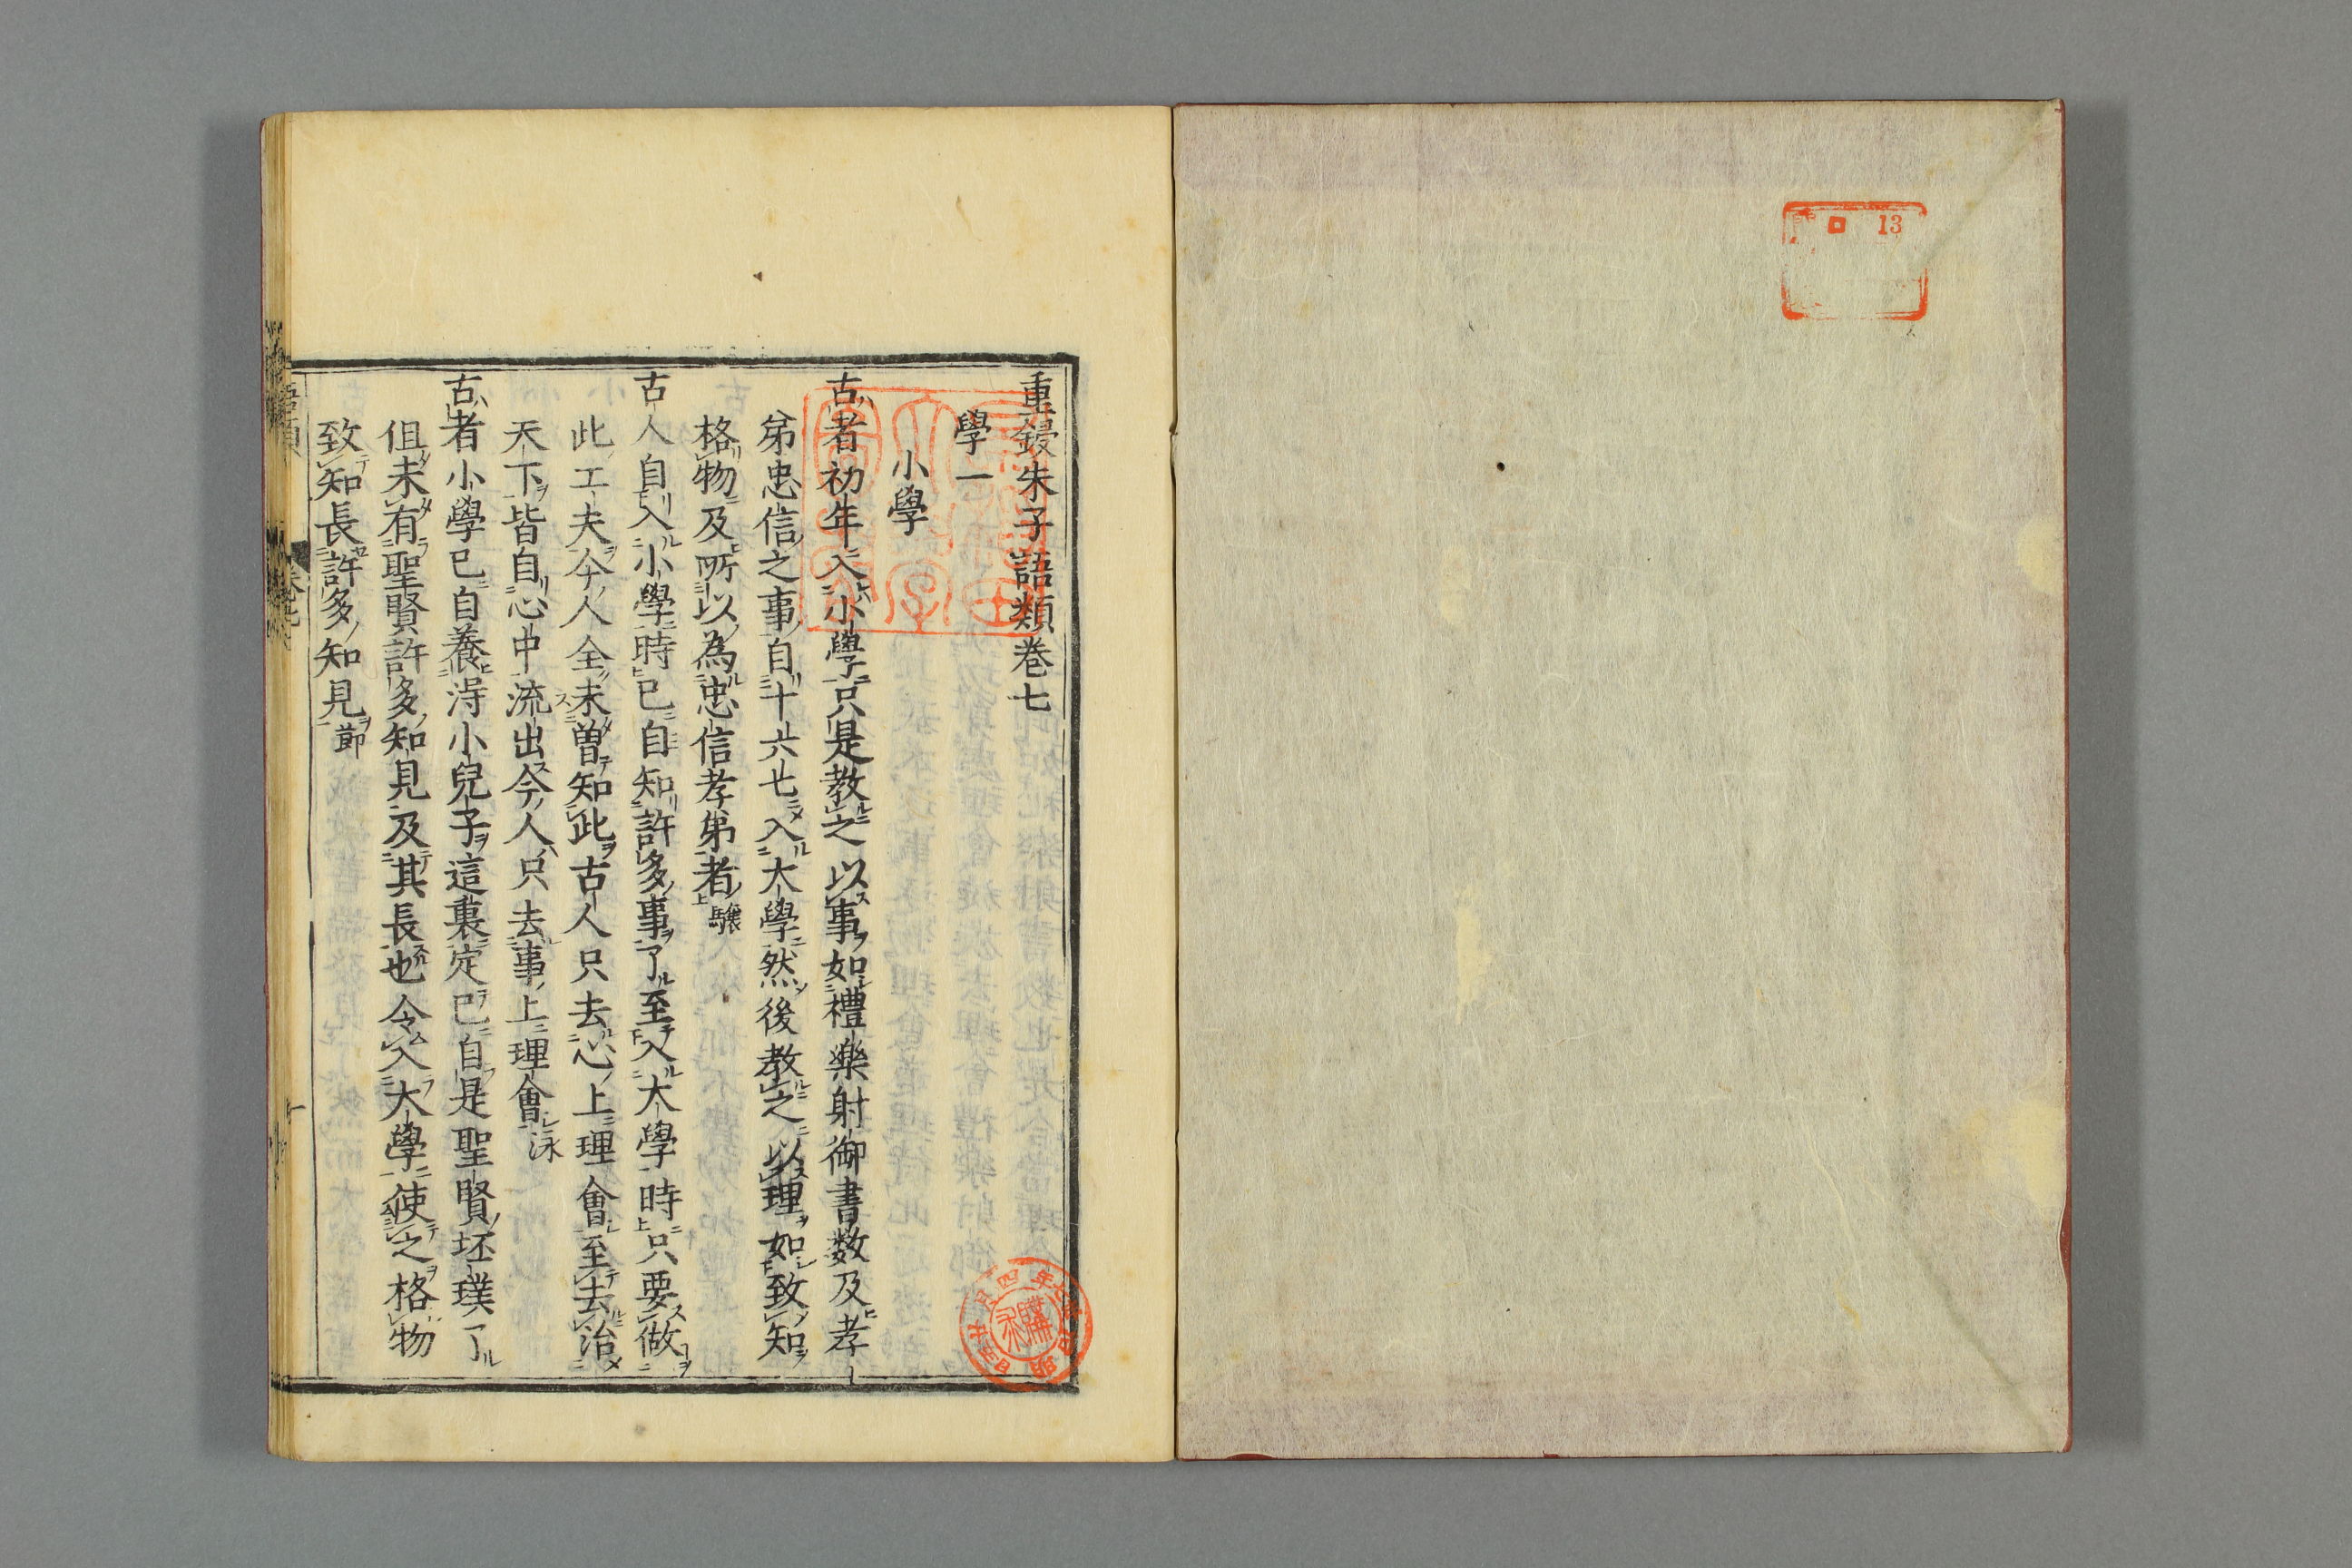 13
重鋟朱子語類卷七
學一
小學
古者初年入小學只是教之以事如禮樂射御書数及孝
弟忠信之事自十六七入大學然後教之以理如致知
格物及所以為忠信孝弟者驤
古人自入小學時已自知許多事了至入大學時只要做
此工夫今人全未曽知此古人只去心上理會至去治
天下皆自心中流出今人只去事上理會泳
古者小學已自養得小兒子這裏定已自是聖賢坯璞了
但未有聖賢許多知見及其長也令入大學使之格物
致知長許多知見節
語類
卷七